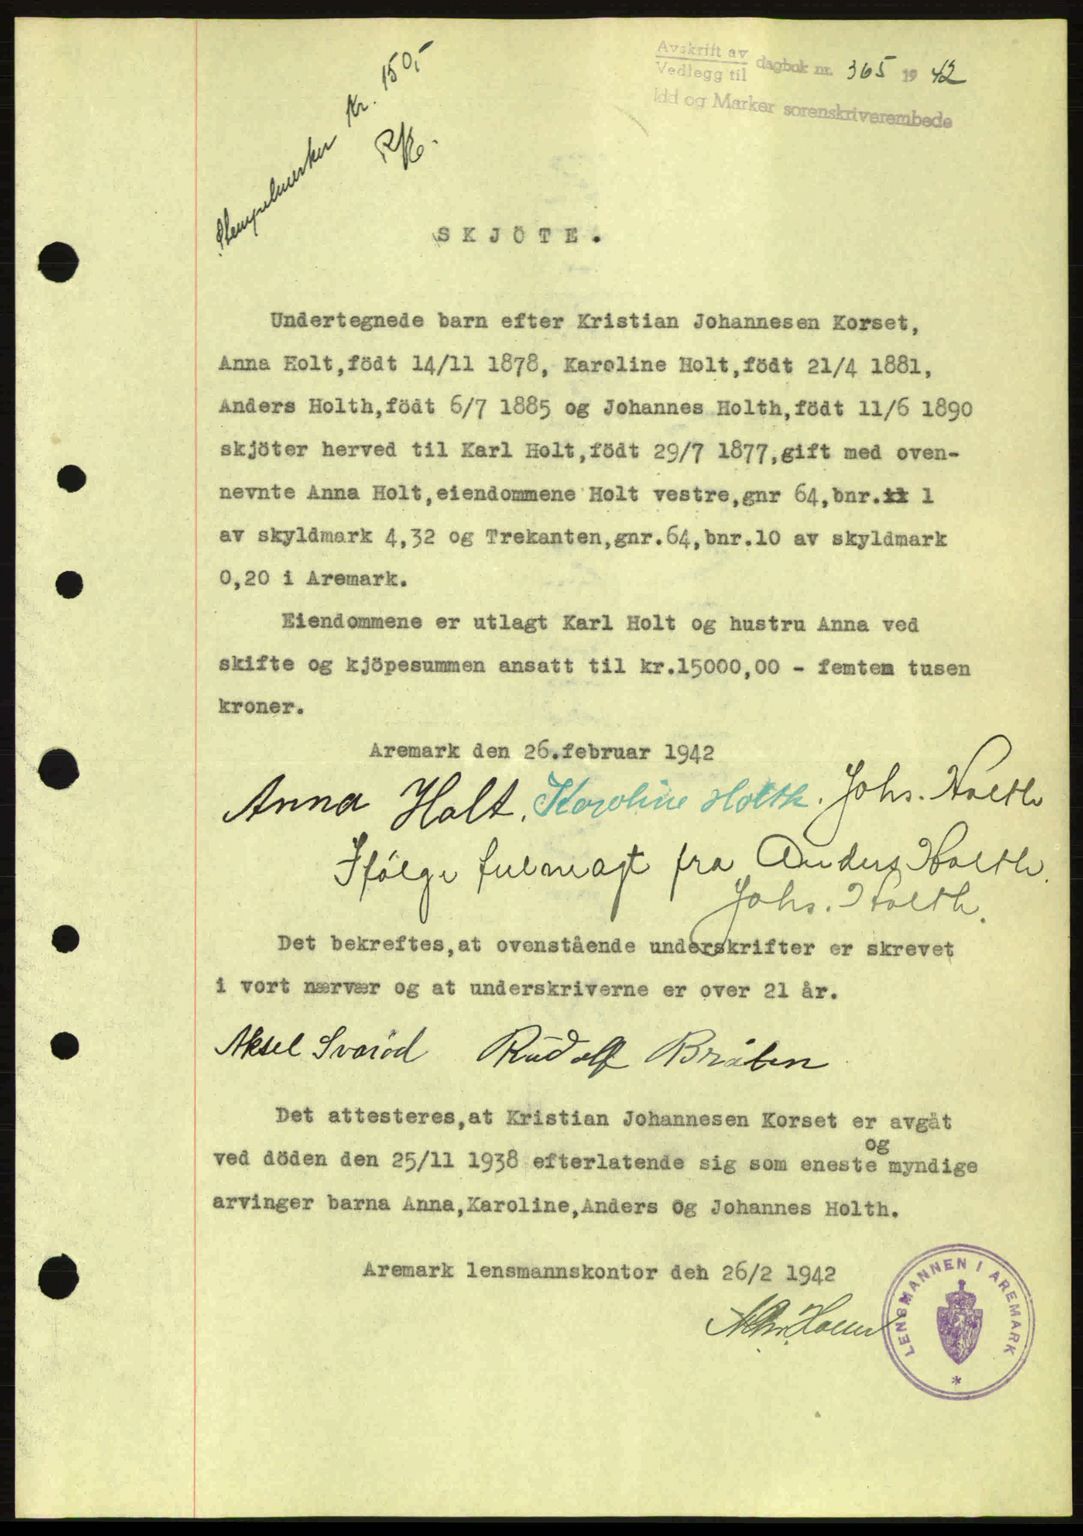 Avskrift av
Vedlegg til dagbok nr. 365 1942
Idd og Marker sorenskriverembede
Stempelmerker Kr. 150,-
SKJÖTE.
Undertegnede barn efter Kristian Johannesen Korset,
Anna Holt,födt 14/11 1878, Karoline Holt,födt 21/4 1881,
Anders Holth,födt 6/7 1885 og Johannes Holth,födt 11/6 1890
skjöter herved til Karl Holt,födt 29/7 1877,gift med oven-
nevnte Anna Holt,eiendommene Holt vestre,gnr 64,bnr. 1
av skyldmark 4,32 og Trekanten,gnr.64,bnr.10 av skyldmark
0,20 i Aremark.
Eiendommene er utlagt Karl Holt og hustru Anna ved
skifte og kjöpesummen ansatt til kr.15000,00 - femten tusen
kroner.
Aremark den 26.februar 1942
Anna Holt. Karoline Holth. Johs. Holth
Ifölge fulmagt fra Anders Holth.
Johs. Holth.
Det bekreftes,at ovenstående underskrifter er skrevet
i vort nærvær og at underskriverne er over 21 år.
Aksel Svaröd Rudolf Bråten
Det attesteres,at Kristian Johannesen Korset er avgåt
ved döden den 25/11 1938 efterlatende sig som eneste og myndige
arvinger barna Anna,Karoline,Anders og Johannes Holth.
Aremark lensmannskontor den 26/2 1942
LENSMANNEN I AREMARK
*